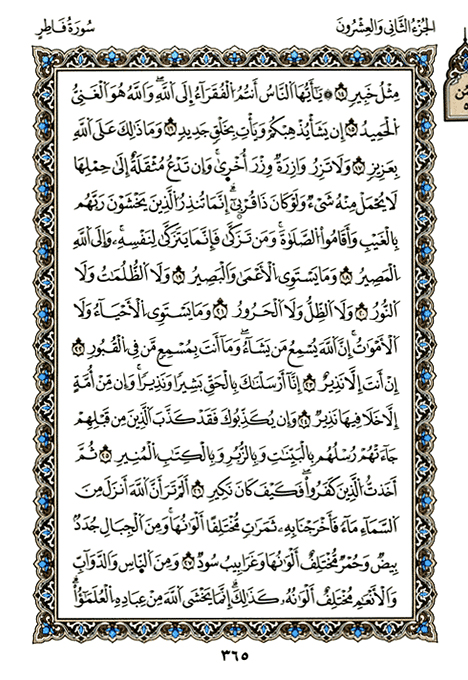 الجُزءُ الثَّانِي وَالعِشْرُونَ
سُورَةُ فَاطِرٍ
مِثْلُ خَبِيرٍ ١٤ ۞ يَٰٓأَيُّهَا النَّاسُ أَنتُمُ الْفُقَرَآءُ إِلَى اللَّهِ وَاللَّهُ هُوَ الْغَنِىُّ
الْحَمِيدُ ١٥ إِن يَشَأْ يُذْهِبْكُمْ وَيَأْتِ بِخَلْقٍ جَدِيدٍ ١٦ وَمَا ذَٰلِكَ عَلَى اللَّهِ
بِعَزِيزٍ ١٧ وَلَا تَزِرُ وَازِرَةٌ وِزْرَ أُخْرَىٰ وَإِن تَدْعُ مُثْقَلَةٌ إِلَىٰ حِمْلِهَا
لَا يُحْمَلْ مِنْهُ شَىْءٌ وَلَوْ كَانَ ذَا قُرْبَىٰٓ إِنَّمَا تُنذِرُ الَّذِينَ يَخْشَوْنَ رَبَّهُم
بِالْغَيْبِ وَأَقَامُوا الصَّلَوٰةَ وَمَن تَزَكَّىٰ فَإِنَّمَا يَتَزَكَّىٰ لِنَفْسِهِۦ وَإِلَى اللَّهِ
الْمَصِيرُ ١٨ وَمَا يَسْتَوِى الْأَعْمَىٰ وَالْبَصِيرُ ١٩ وَلَا الظُّلُمَٰتُ وَلَا
النُّورُ ٢٠ وَلَا الظِّلُّ وَلَا الْحَرُورُ ٢١ وَمَا يَسْتَوِى الْأَحْيَآءُ وَلَا
الْأَمْوَٰتُ إِنَّ اللَّهَ يُسْمِعُ مَن يَشَآءُ وَمَآ أَنتَ بِمُسْمِعٍ مَّن فِى الْقُبُورِ ٢٢
إِنْ أَنتَ إِلَّا نَذِيرٌ ٢٣ إِنَّآ أَرْسَلْنَٰكَ بِالْحَقِّ بَشِيرًا وَنَذِيرًا وَإِن مِّنْ أُمَّةٍ
إِلَّا خَلَا فِيهَا نَذِيرٌ ٢٤ وَإِن يُكَذِّبُوكَ فَقَدْ كَذَّبَ الَّذِينَ مِن قَبْلِهِمْ
جَآءَتْهُمْ رُسُلُهُم بِالْبَيِّنَٰتِ وَبِالزُّبُرِ وَبِالْكِتَٰبِ الْمُنِيرِ ٢٥ ثُمَّ
أَخَذْتُ الَّذِينَ كَفَرُوا فَكَيْفَ كَانَ نَكِيرِ ٢٦ أَلَمْ تَرَ أَنَّ اللَّهَ أَنزَلَ مِنَ
السَّمَآءِ مَآءً فَأَخْرَجْنَا بِهِۦ ثَمَرَٰتٍ مُّخْتَلِفًا أَلْوَٰنُهَا وَمِنَ الْجِبَالِ جُدَدٌ
بِيضٌ وَحُمْرٌ مُّخْتَلِفٌ أَلْوَٰنُهَا وَغَرَابِيبُ سُودٌ ٢٧ وَمِنَ النَّاسِ وَالدَّوَآبِّ
وَالْأَنْعَٰمِ مُخْتَلِفٌ أَلْوَٰنُهُۥ كَذَٰلِكَ إِنَّمَا يَخْشَى اللَّهَ مِنْ عِبَادِهِ الْعُلَمَٰٓؤُا
٣٦٥